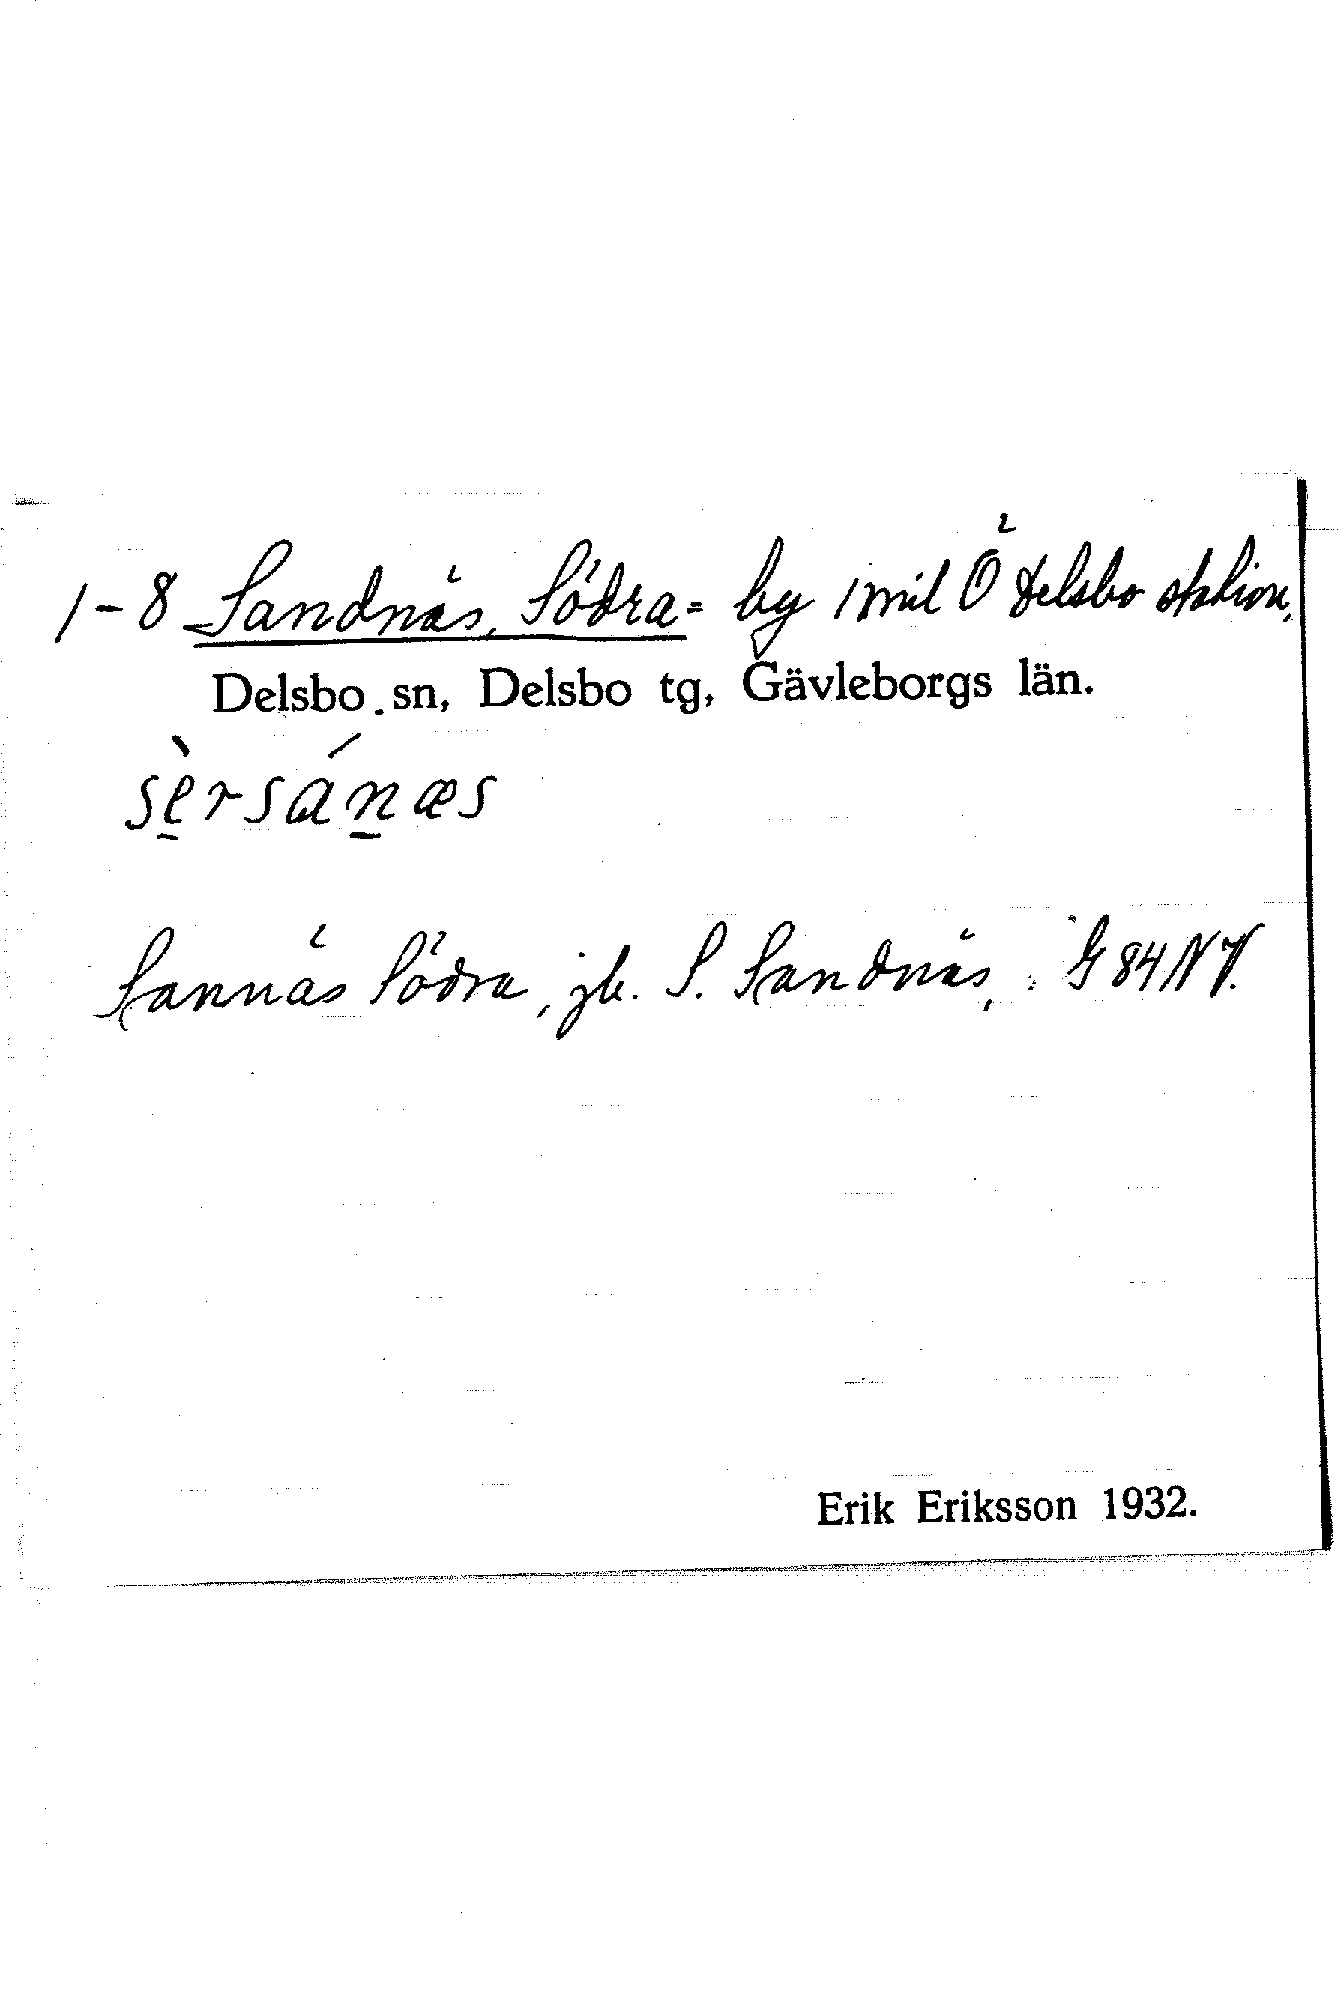 1-8 Sandnäs, Södra = by 1 mil Ö Delsbo station,
Delsbo sn, Delsbo tg, Gävleborgs län.
sè̱rsáṉæs
Sannäs Södra, jb. S. Sandnäs, G 84 NV.
Erik Eriksson 1932.